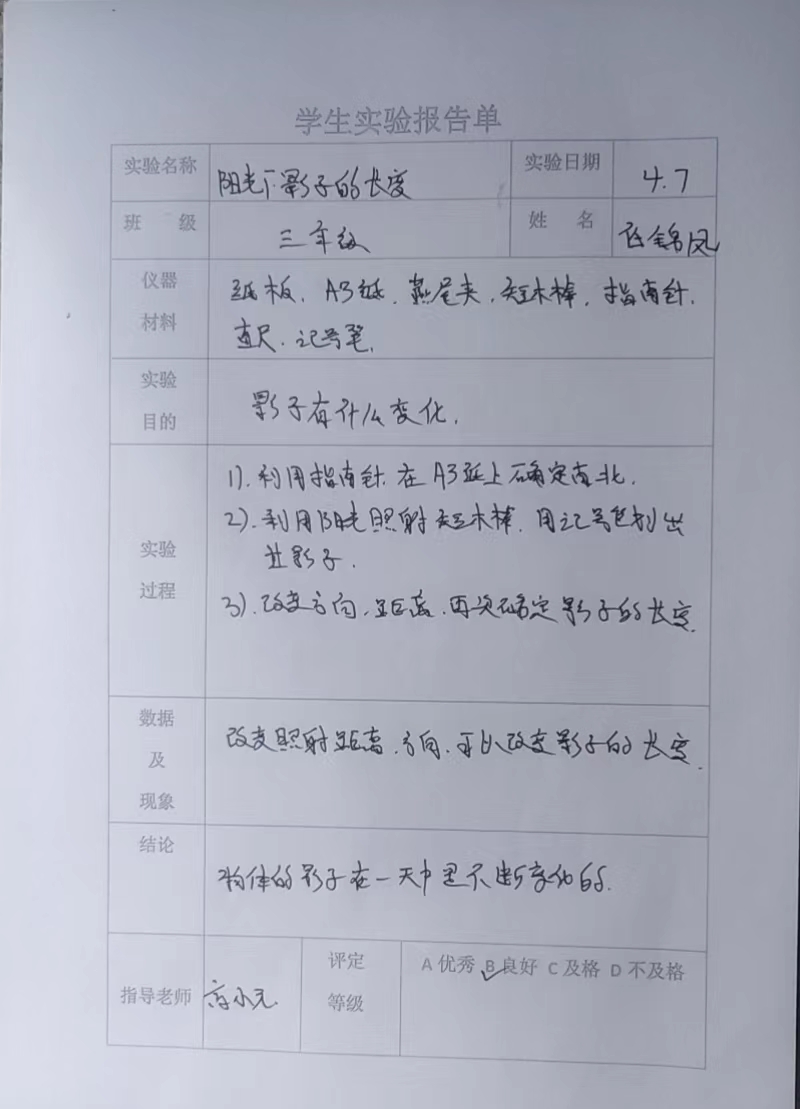 学生实验报告单
实验名称 阳光下影子的长度 实验日期 4.7
班 级 三年级 姓 名 锦凤
仪器
材料
纸板、A3纸、燕尾夹、短木棒、指南针、
直尺、记号笔、
实验
目的
影子有什么变化.
实验
过程
1).利用指南针在A3纸上确定南北.
2).利用阳光照射短木棒.用记号笔划出
其影子.
3).改变方向、距离、再次确定影子的长度.
数据
及
现象
改变照射距离、方向、可以改变影子的长度.
结论
物体的影子在一天中是不断变化的.
指导老师 小元.
评定
等级
A 优秀 B 良好 C 及格 D 不及格